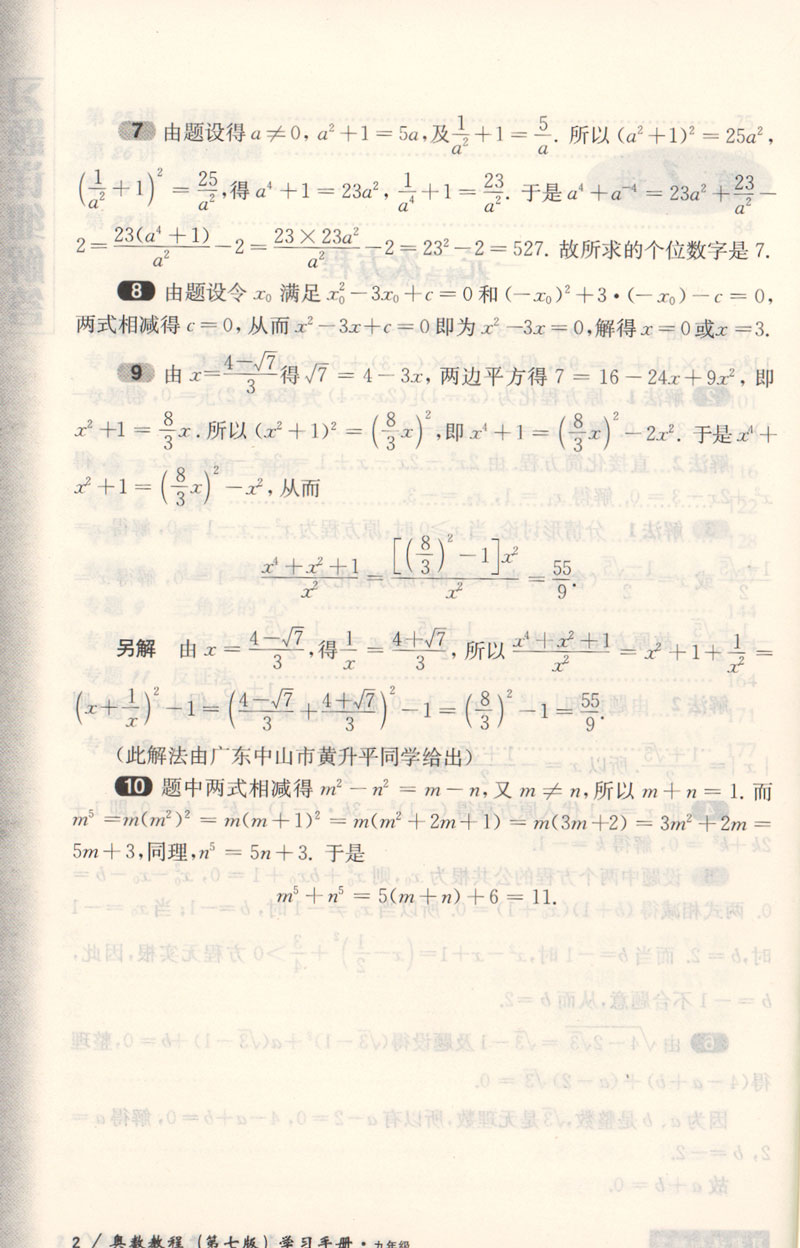 7 由题设得 a ≠ 0, a² + 1 = 5a, 及 1/a² + 1 = 5/a. 所以 (a² + 1)² = 25a²,
(1/a² + 1)² = 25/a², 得 a⁴ + 1 = 23a², 1/a⁴ + 1 = 23/a². 于是 a⁴ + a⁻⁴ = 23a² + 23/a² −
2 = 23(a⁴ + 1)/a² − 2 = 23 × 23a²/a² − 2 = 23² − 2 = 527. 故所求的个位数字是 7.
8 由题设令 x₀ 满足 x₀² − 3x₀ + c = 0 和 (−x₀)² + 3 · (−x₀) − c = 0,
两式相减得 c = 0, 从而 x² − 3x + c = 0 即为 x² − 3x = 0, 解得 x = 0 或 x = 3.
9 由 x = (4 − √7)/3 得 √7 = 4 − 3x, 两边平方得 7 = 16 − 24x + 9x², 即
x² + 1 = 8/3 x. 所以 (x² + 1)² = (8/3 x)², 即 x⁴ + 1 = (8/3 x)² − 2x². 于是 x⁴ +
x² + 1 = (8/3 x)² − x², 从而
(x⁴ + x² + 1)/x² = [(8/3)² − 1]x²/x² = 55/9.
另解 由 x = (4 − √7)/3, 得 1/x = (4 + √7)/3, 所以 (x⁴ + x² + 1)/x² = x² + 1 + 1/x² =
(x + 1/x)² − 1 = ((4 − √7)/3 + (4 + √7)/3)² − 1 = (8/3)² − 1 = 55/9.
(此解法由广东中山市黄升平同学给出)
10 题中两式相减得 m² − n² = m − n, 又 m ≠ n, 所以 m + n = 1. 而
m⁵ = m(m²)² = m(m + 1)² = m(m² + 2m + 1) = m(3m + 2) = 3m² + 2m =
5m + 3, 同理, n⁵ = 5n + 3. 于是
m⁵ + n⁵ = 5(m + n) + 6 = 11.
2 / 奥数教程(第七版)学习手册 · 九年级